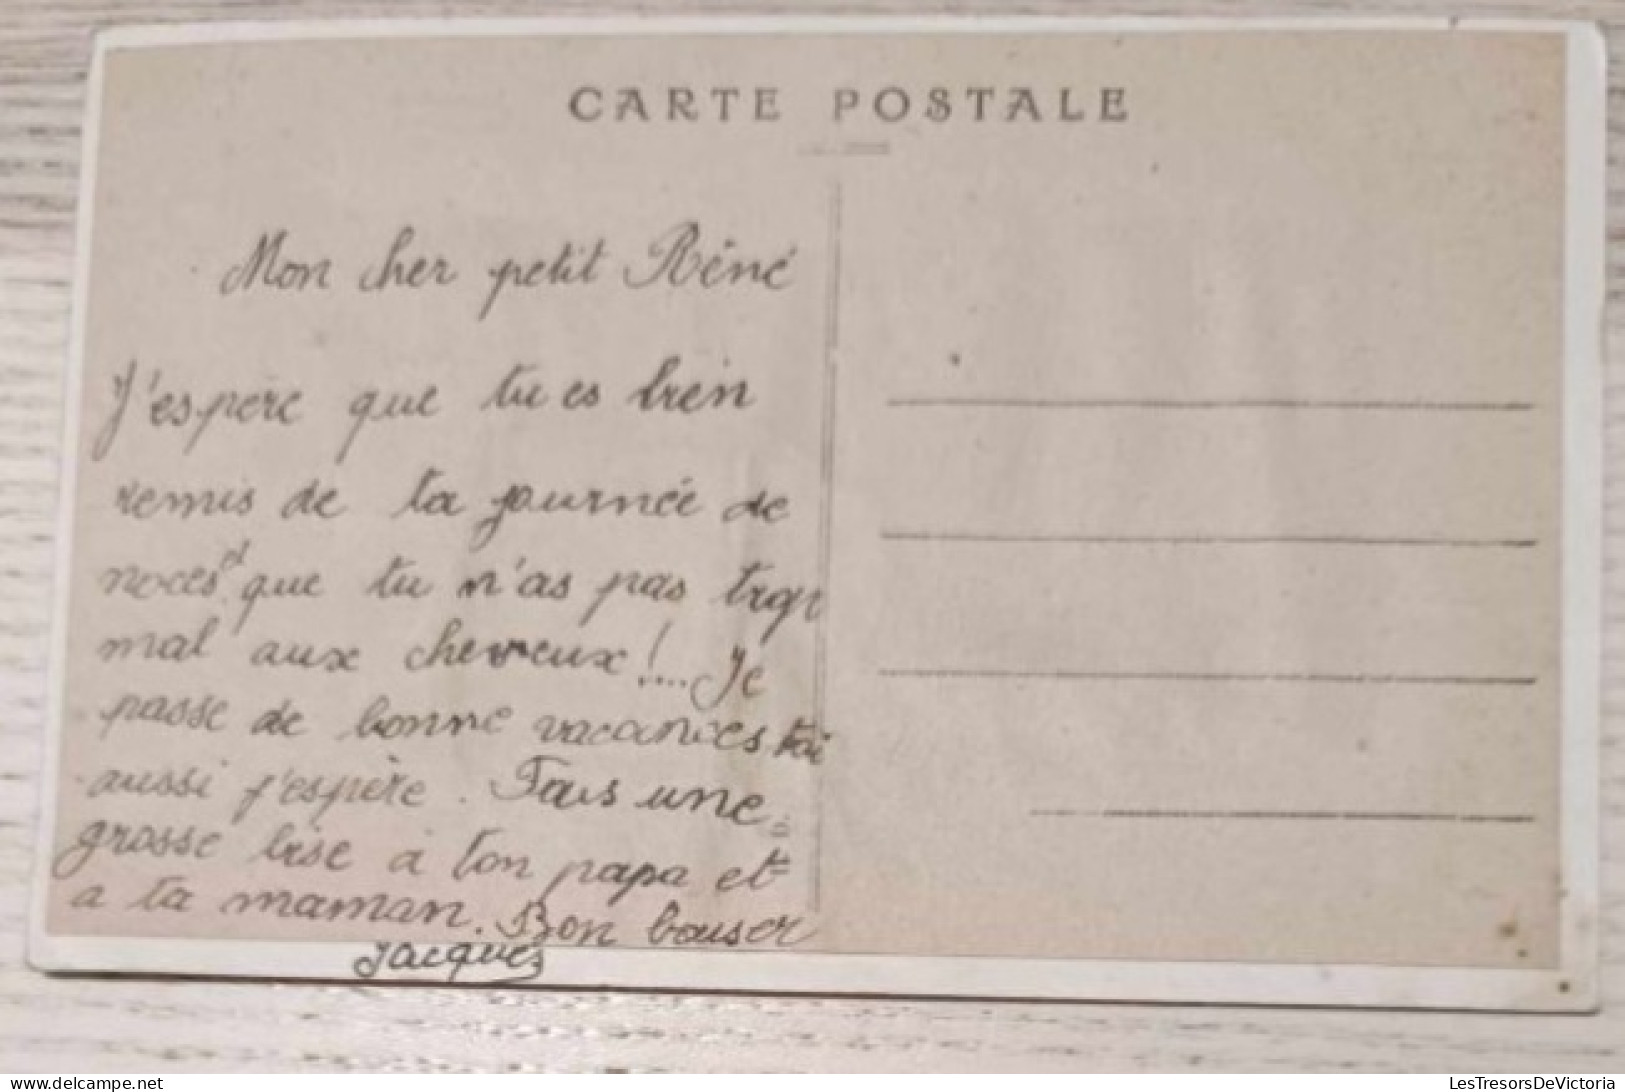 CARTE POSTALE
Mon cher petit Réné
J'espère que tu es bien
remis de ta journée de
noces et que tu n'as pas trop
mal aux cheveux!.... Je
passe de bonne vacances toi
aussi j'espère. Fais une
grosse bise à ton papa et
a ta maman. Bon baiser
Jacques
delcampe.net
LesTresorsDeVictoria